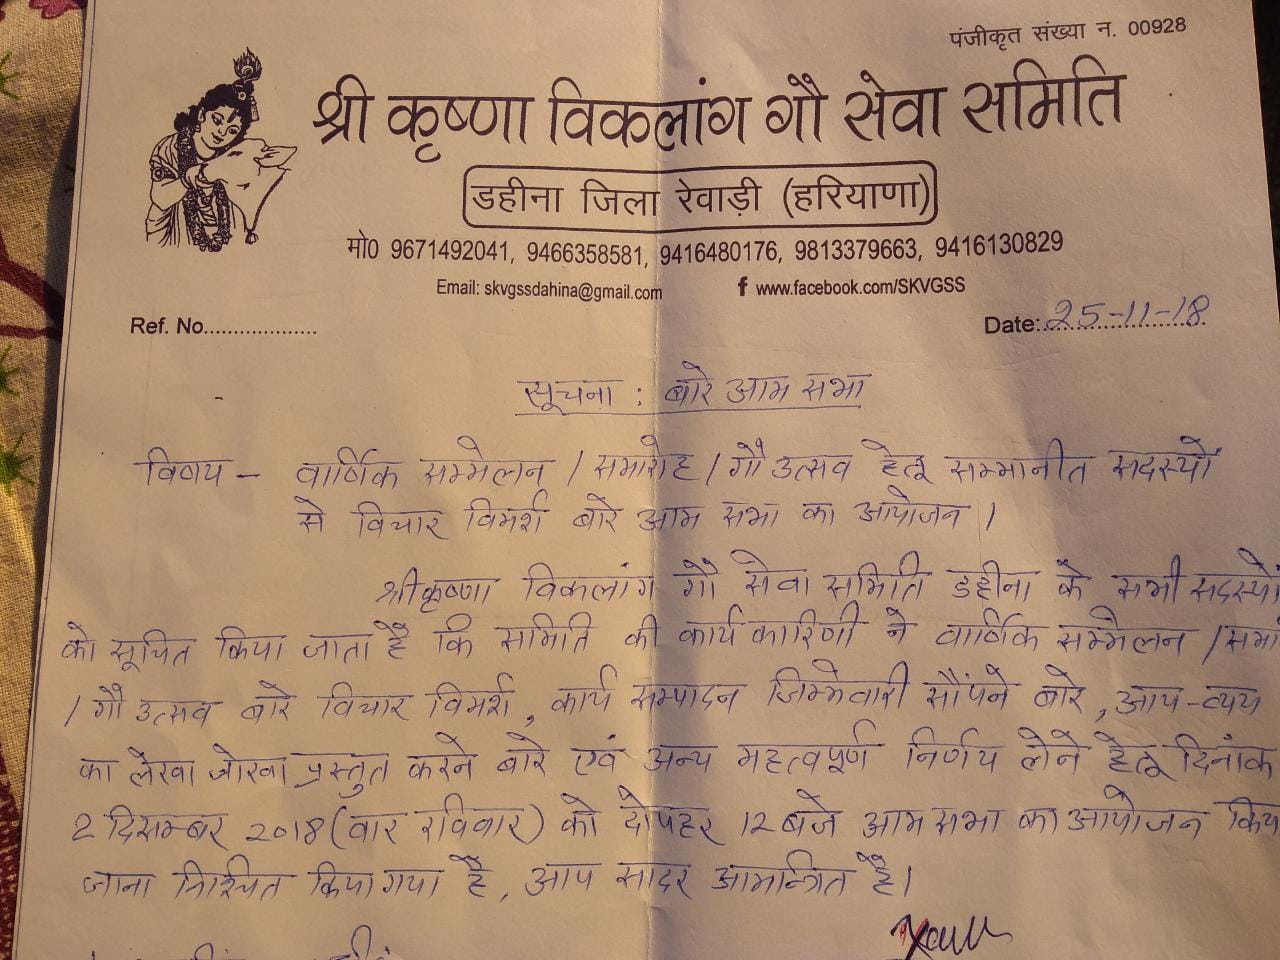 पंजीकृत संख्या न. 00928
श्री कृष्णा विकलांग गौ सेवा समिति
डहीना जिला रेवाड़ी (हरियाणा)
मो0 9671492041, 9466358581, 9416480176, 9813379663, 9416130829
Email: skvgssdahina@gmail.com f www.facebook.com/SKVGSS
Ref. No................... Date: 25-11-18
सूचना : बारे आम सभा
विषय - वार्षिक सम्मेलन / समारोह / गौ उत्सव हेतू सम्मानीत सदस्यों
से विचार विमर्श बारे आम सभा का आयोजन ।
श्री कृष्णा विकलांग गौ सेवा समिति डहीना के सभी सदस्यों
को सूचित किया जाता है कि समिति की कार्यकारिणी ने वार्षिक सम्मेलन / समा
/ गौ उत्सव बारे विचार विमर्श, कार्य सम्पादन जिम्मेवारी सौंपने बारे, आय-व्यय
का लेखा जोखा प्रस्तुत करने बारे एवं अन्य महत्वपूर्ण निर्णय लेने हेतू दिनांक
2 दिसम्बर 2018 (वार रविवार) को दोपहर 12 बजे आम सभा का आयोजन किय
जाना निश्चित किया गया है, आप सादर आमन्त्रित है।